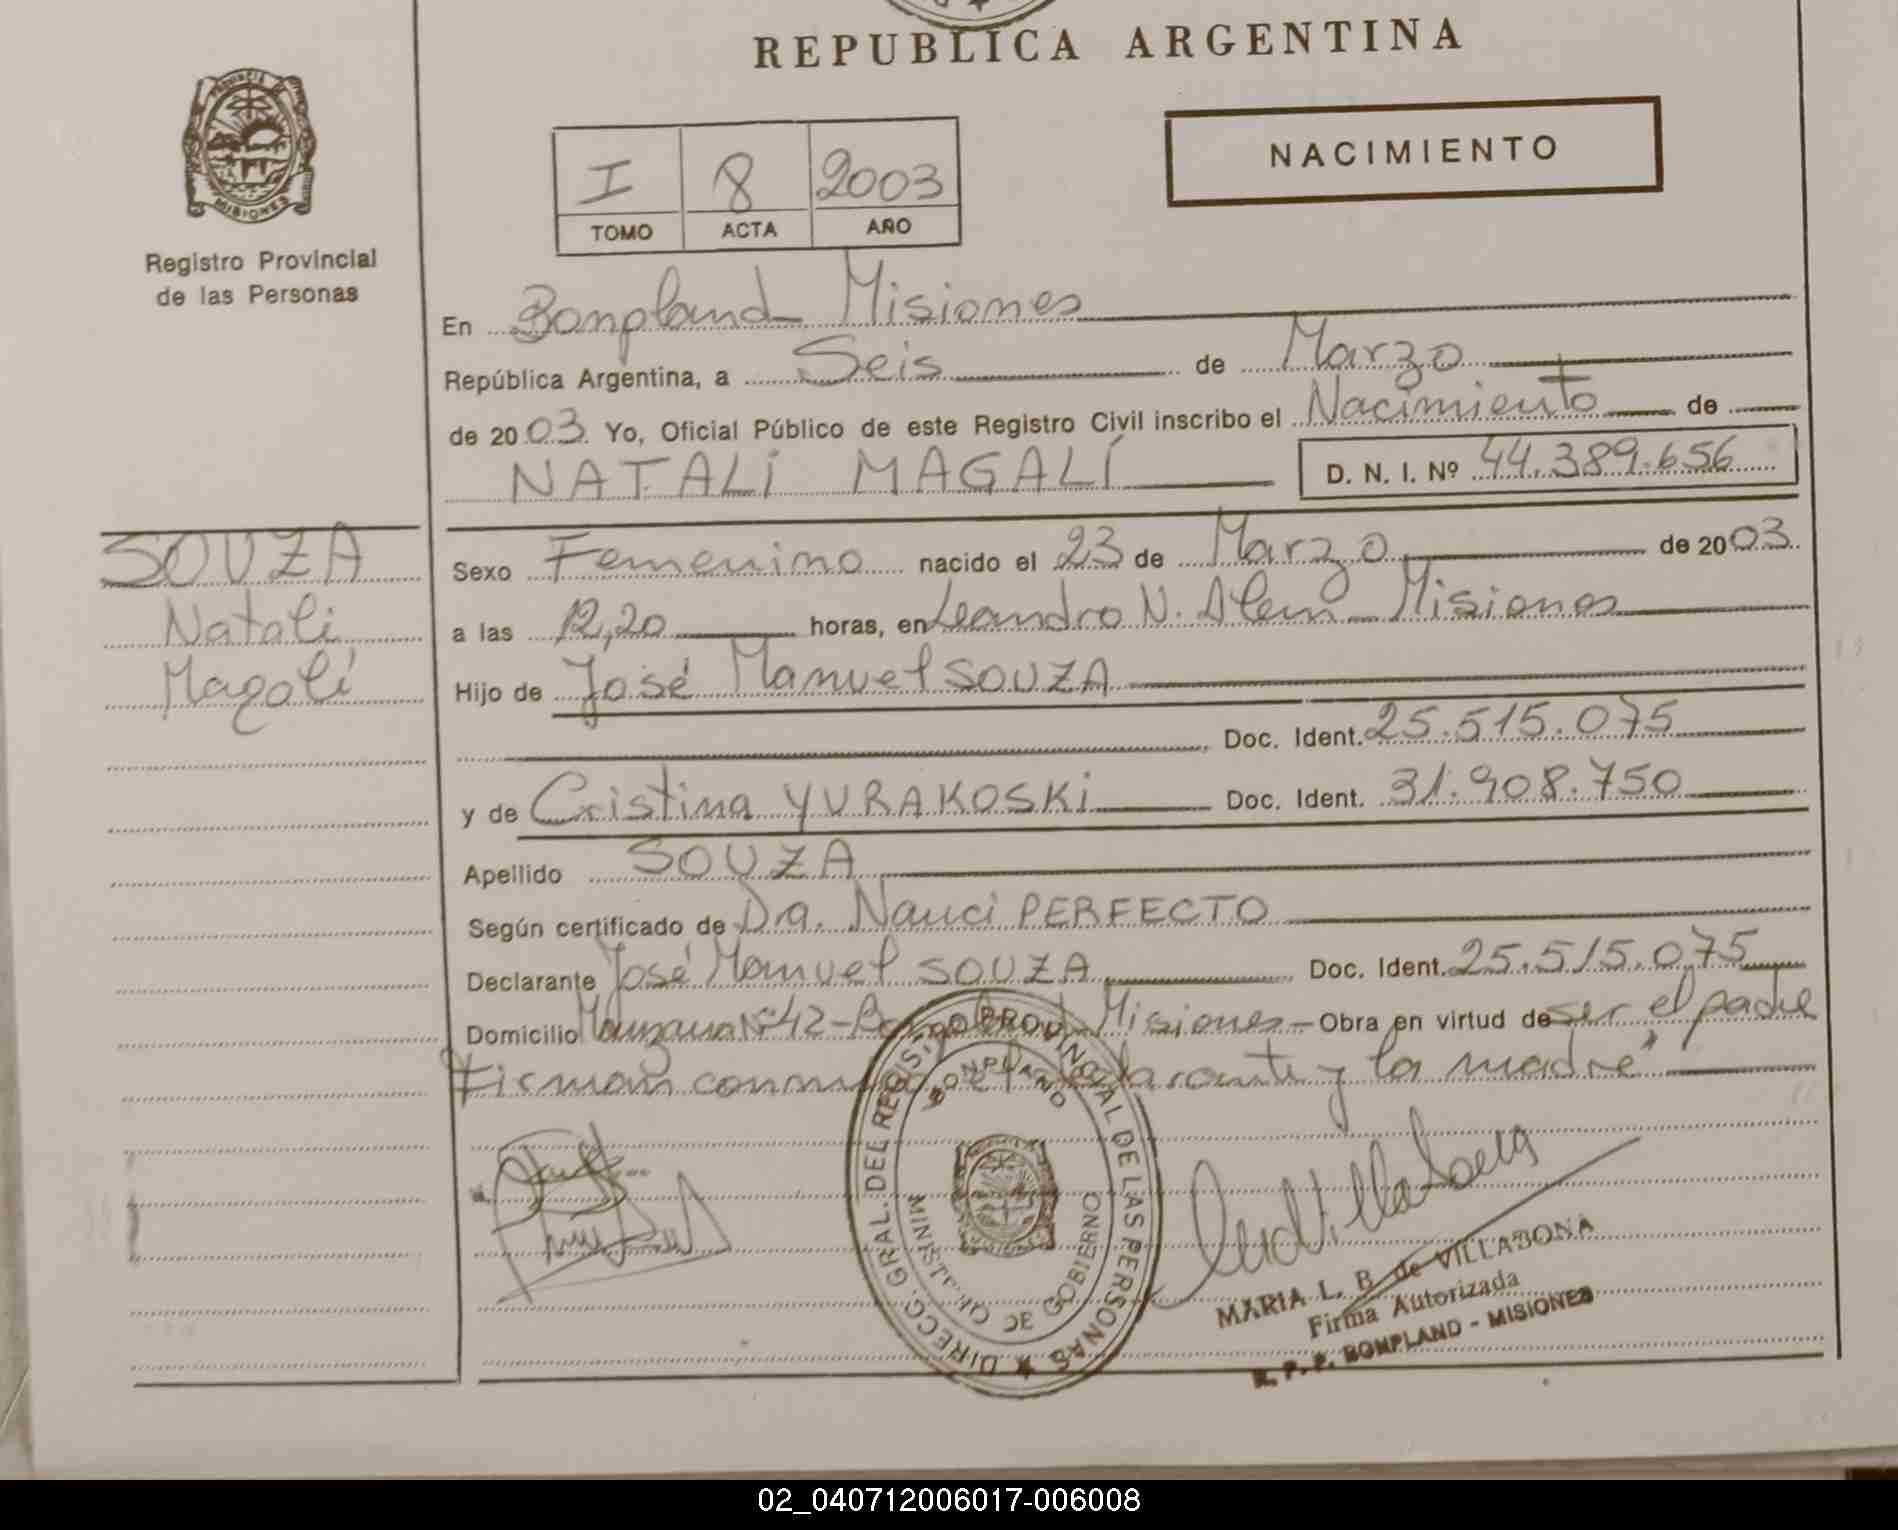 REPUBLICA ARGENTINA
NACIMIENTO
I 8 2003
TOMO ACTA AÑO
MISIONES
Registro Provincial
de las Personas
En Bonpland Misiones
República Argentina, a Seis de Marzo
de 2003. Yo, Oficial Público de este Registro Civil inscribo el Nacimiento de
NATALI MAGALÍ D. N. I. Nº 44.389.656
SOUZA
Natali
Magalí
Sexo Femenino nacido el 23 de Marzo de 2003.
a las 12,20 horas, en Leandro N. Alem Misiones
Hijo de José Manuel SOUZA
Doc. Ident. 25.515.075
y de Cristina YURAKOSKI Doc. Ident. 31.908.750
Apellido SOUZA
Según certificado de Dra. Nanci PERFECTO
Declarante José Manuel SOUZA Doc. Ident. 25.515.075
Domicilio Manzana Nº 42 - Bonpland Misiones - Obra en virtud de ser el padre
"Firman conmigo el declarante y la madre"
DIRECC. GRAL. DEL REGISTRO PROVINCIAL DE LAS PERSONAS
BONPLAND
MINISTERIO DE GOBIERNO
MARIA L. B. de VILLABONA
Firma Autorizada
R. P. P. BONPLAND - MISIONES
02_040712006017-006008